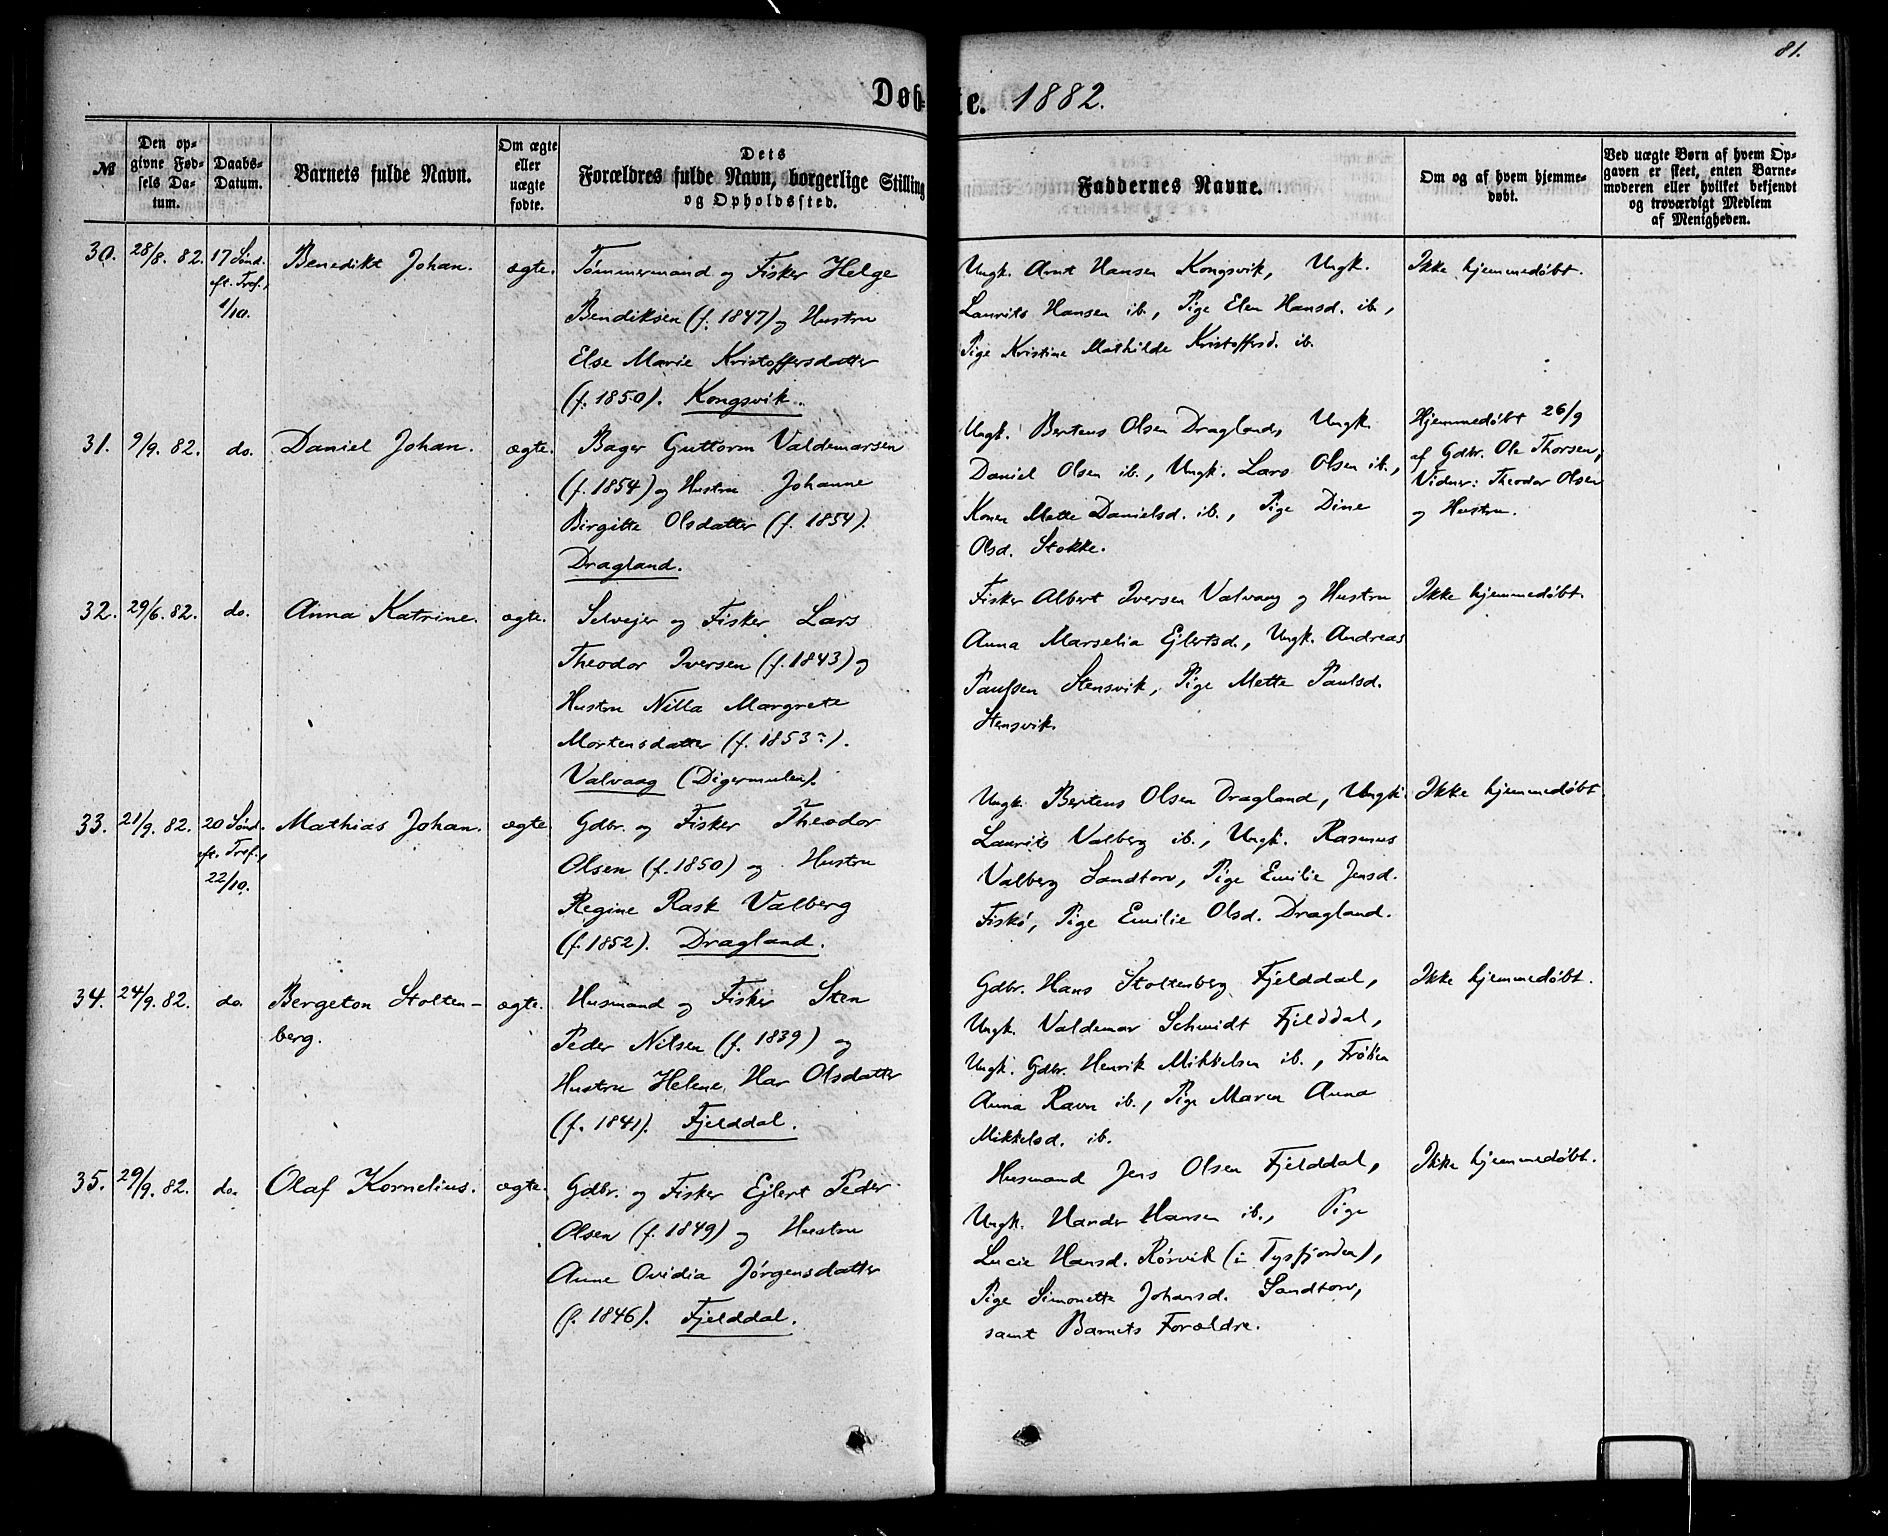 81.
Døbte. 1882.
№
Den op-
givne Fød-
sels Da-
tum.
Daabs-
Datum.
Barnets fulde Navn.
Om ægte
eller
uægte
fødte.
Dets
Forældres fulde Navn, borgerlige Stilling
og Opholdssted.
Faddernes Navne.
Om og af hvem hjemme-
døbt.
Ved uægte Børn af hvem Op-
gaven er skeet, enten Barne-
moderen eller hvilket bekjendt
og troværdigt Medlem
af Menigheden.
30.
28/8. 82.
17 Sønd.
eft. Tref.,
1/10.
Benedikt Johan.
ægte.
Tømmermand og Fisker Helge
Bendiksen (f. 1847) og Hustru
Else Marie Kristoffersdatter
(f. 1850). Kongsvik.
Ungk. Arnt Hansen Kongsvik, Ungk.
Laurits Hansen ib., Pige Elen Hansd. ib.,
Pige Kristine Mathilde Kristoffersd. ib.
Ikke hjemmedøbt.
31.
9/9. 82.
do.
Daniel Johan.
ægte.
Bager Guttorm Valdemarsen
(f. 1854) og Hustru Johanne
Birgitte Olsdatter (f. 1854).
Dragland.
Ungk. Bertens Olsen Dragland, Ungk.
Daniel Olsen ib., Ungk. Lars Olsen ib.,
Konen Mette Danielsd. ib., Pige Dine
Olsd. Stokke.
Hjemmedøbt 26/9
af Gdbr. Ole Thorsen;
Vidner: Theodor Olsen
og Hustru.
32.
29/6. 82.
do.
Anna Katrine.
ægte.
Selvejer og Fisker Lars
Theodor Iversen (f. 1843) og
Hustru Nilla Margrete
Mortensdatter (f. 1853?).
Valvaag (Digermulen).
Fisker Albert Iversen Valvaag og Hustru
Anna Marselia Ejlertsd., Ungk. Andreas
Paulsen Stensvik, Pige Mette Paulsd.
Stensvik.
Ikke hjemmedøbt.
33.
21/9. 82.
20 Sønd.
eft. Tref.,
22/10.
Mathias Johan.
ægte.
Gdbr. og Fisker Theodor
Olsen (f. 1850) og Hustru
Regine Rask Valberg
(f. 1852). Dragland.
Ungk. Bertens Olsen Dragland, Ungk.
Laurits Valberg ib., Ungk. Rasmus
Valberg Sandtorv, Pige Emilie Jensd.
Fiskø, Pige Emilie Olsd. Dragland.
Ikke hjemmedøbt.
34.
24/9. 82.
do.
Bergeton Stolten-
berg.
ægte.
Husmand og Fisker Sten
Peder Nilsen (f. 1839) og
Hustru Helene Har Olsdatter
(f. 1841). Fjelddal.
Gdbr. Hans Stoltenberg Fjelddal,
Ungk. Valdemar Schmidt Fjelddal,
Ungk. Gdbr. Henrik Mikkelsen ib., Frøken
Anna Ravn ib., Pige Maren Anna
Mikkelsd. ib.
Ikke hjemmedøbt.
35.
29/9. 82.
do.
Olaf Kornelius.
ægte.
Gdbr. og Fisker Ejlert Peder
Olsen (f. 1849) og Hustru
Anne Ovidia Jørgensdatter
(f. 1846). Fjelddal.
Husmand Jens Olsen Fjelddal,
Ungk. Hansen ib., Pige
Lucie Hansd. Rørvik (i Tysfjorden),
Pige Simonette Johansd. Sandtorv,
samt Barnets Forældre.
Ikke hjemmedøbt.